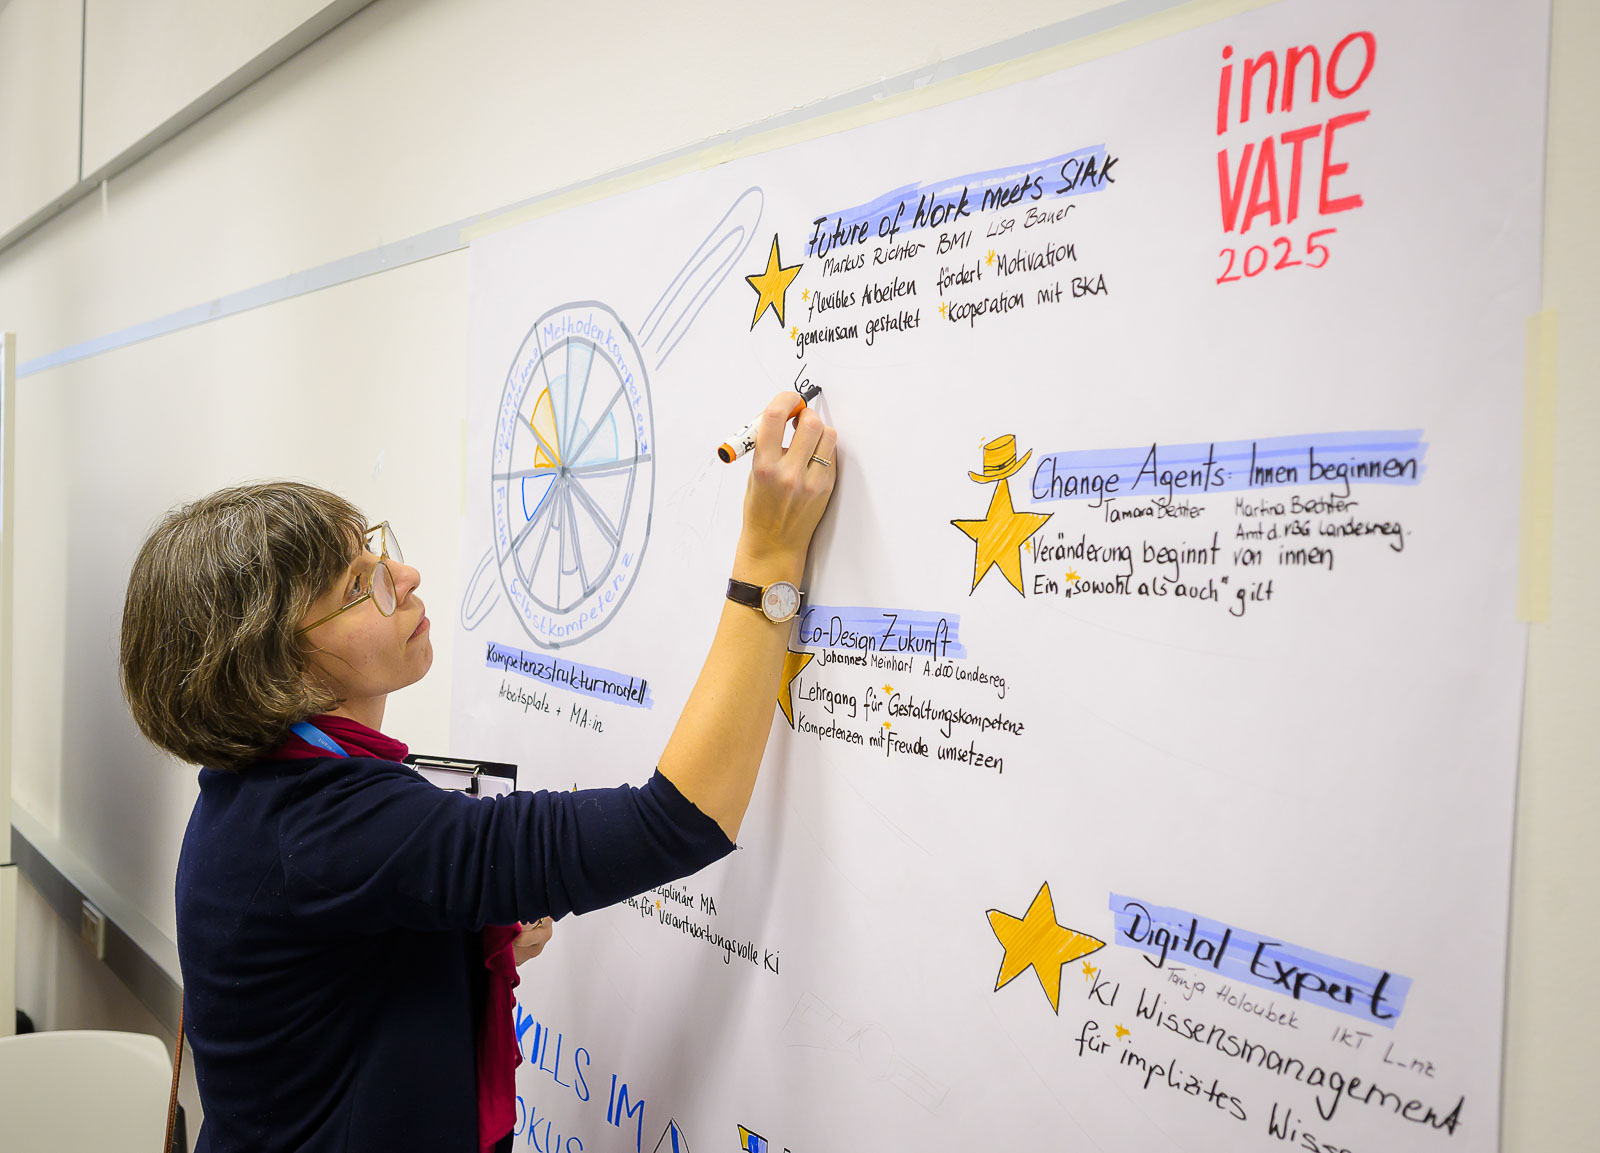 inno
VATE
2025
Future of Work meets SIAK
Markus Richter BMI Lisa Bauer
*flexibles Arbeiten fördert *Motivation
*gemeinsam gestaltet *Kooperation mit BKA
Methodenkompetenz
Sozial-
kompetenz
Fach
Selbstkompetenz
Kompetenzstrukturmodell
Arbeitsplatz + MA:in
Change Agents: Innen beginnen
Tamara Bechter Martina Bechter
Amt d. VBG Landesreg.
*Veränderung beginnt von innen
Ein „sowohl als auch“ gilt
Co-Design Zukunft
Johannes Meinhart A.dOÖ Landesreg.
Lehrgang für *Gestaltungskompetenz
Kompetenzen mit *Freude umsetzen
MA
für *verantwortungsvolle KI
Digital Expert
Tanja Holoubek IKT
*KI Wissensmanagement
für *implizites
SKILLS IM